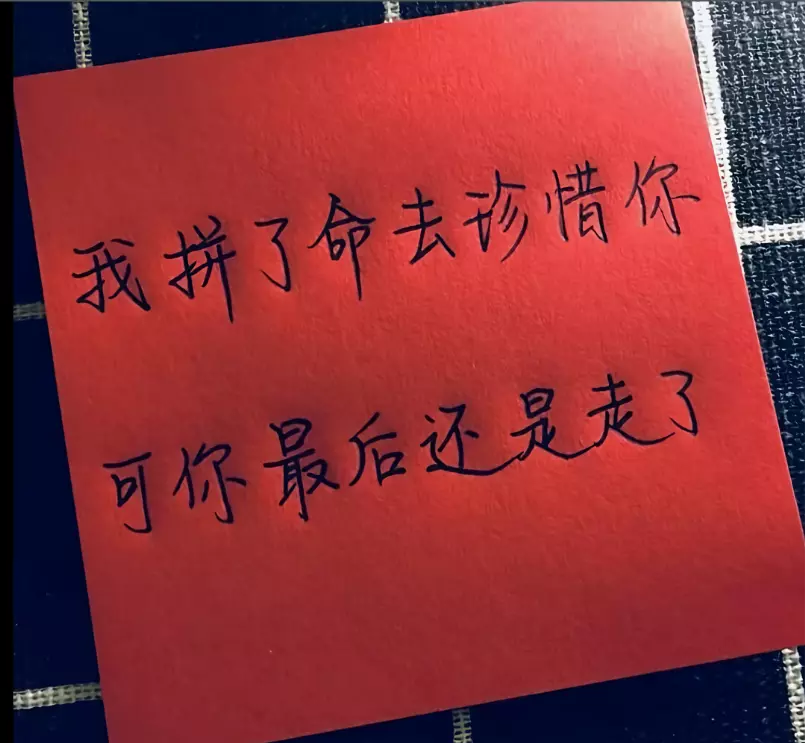 我拼了命去珍惜你
可你最后还是走了